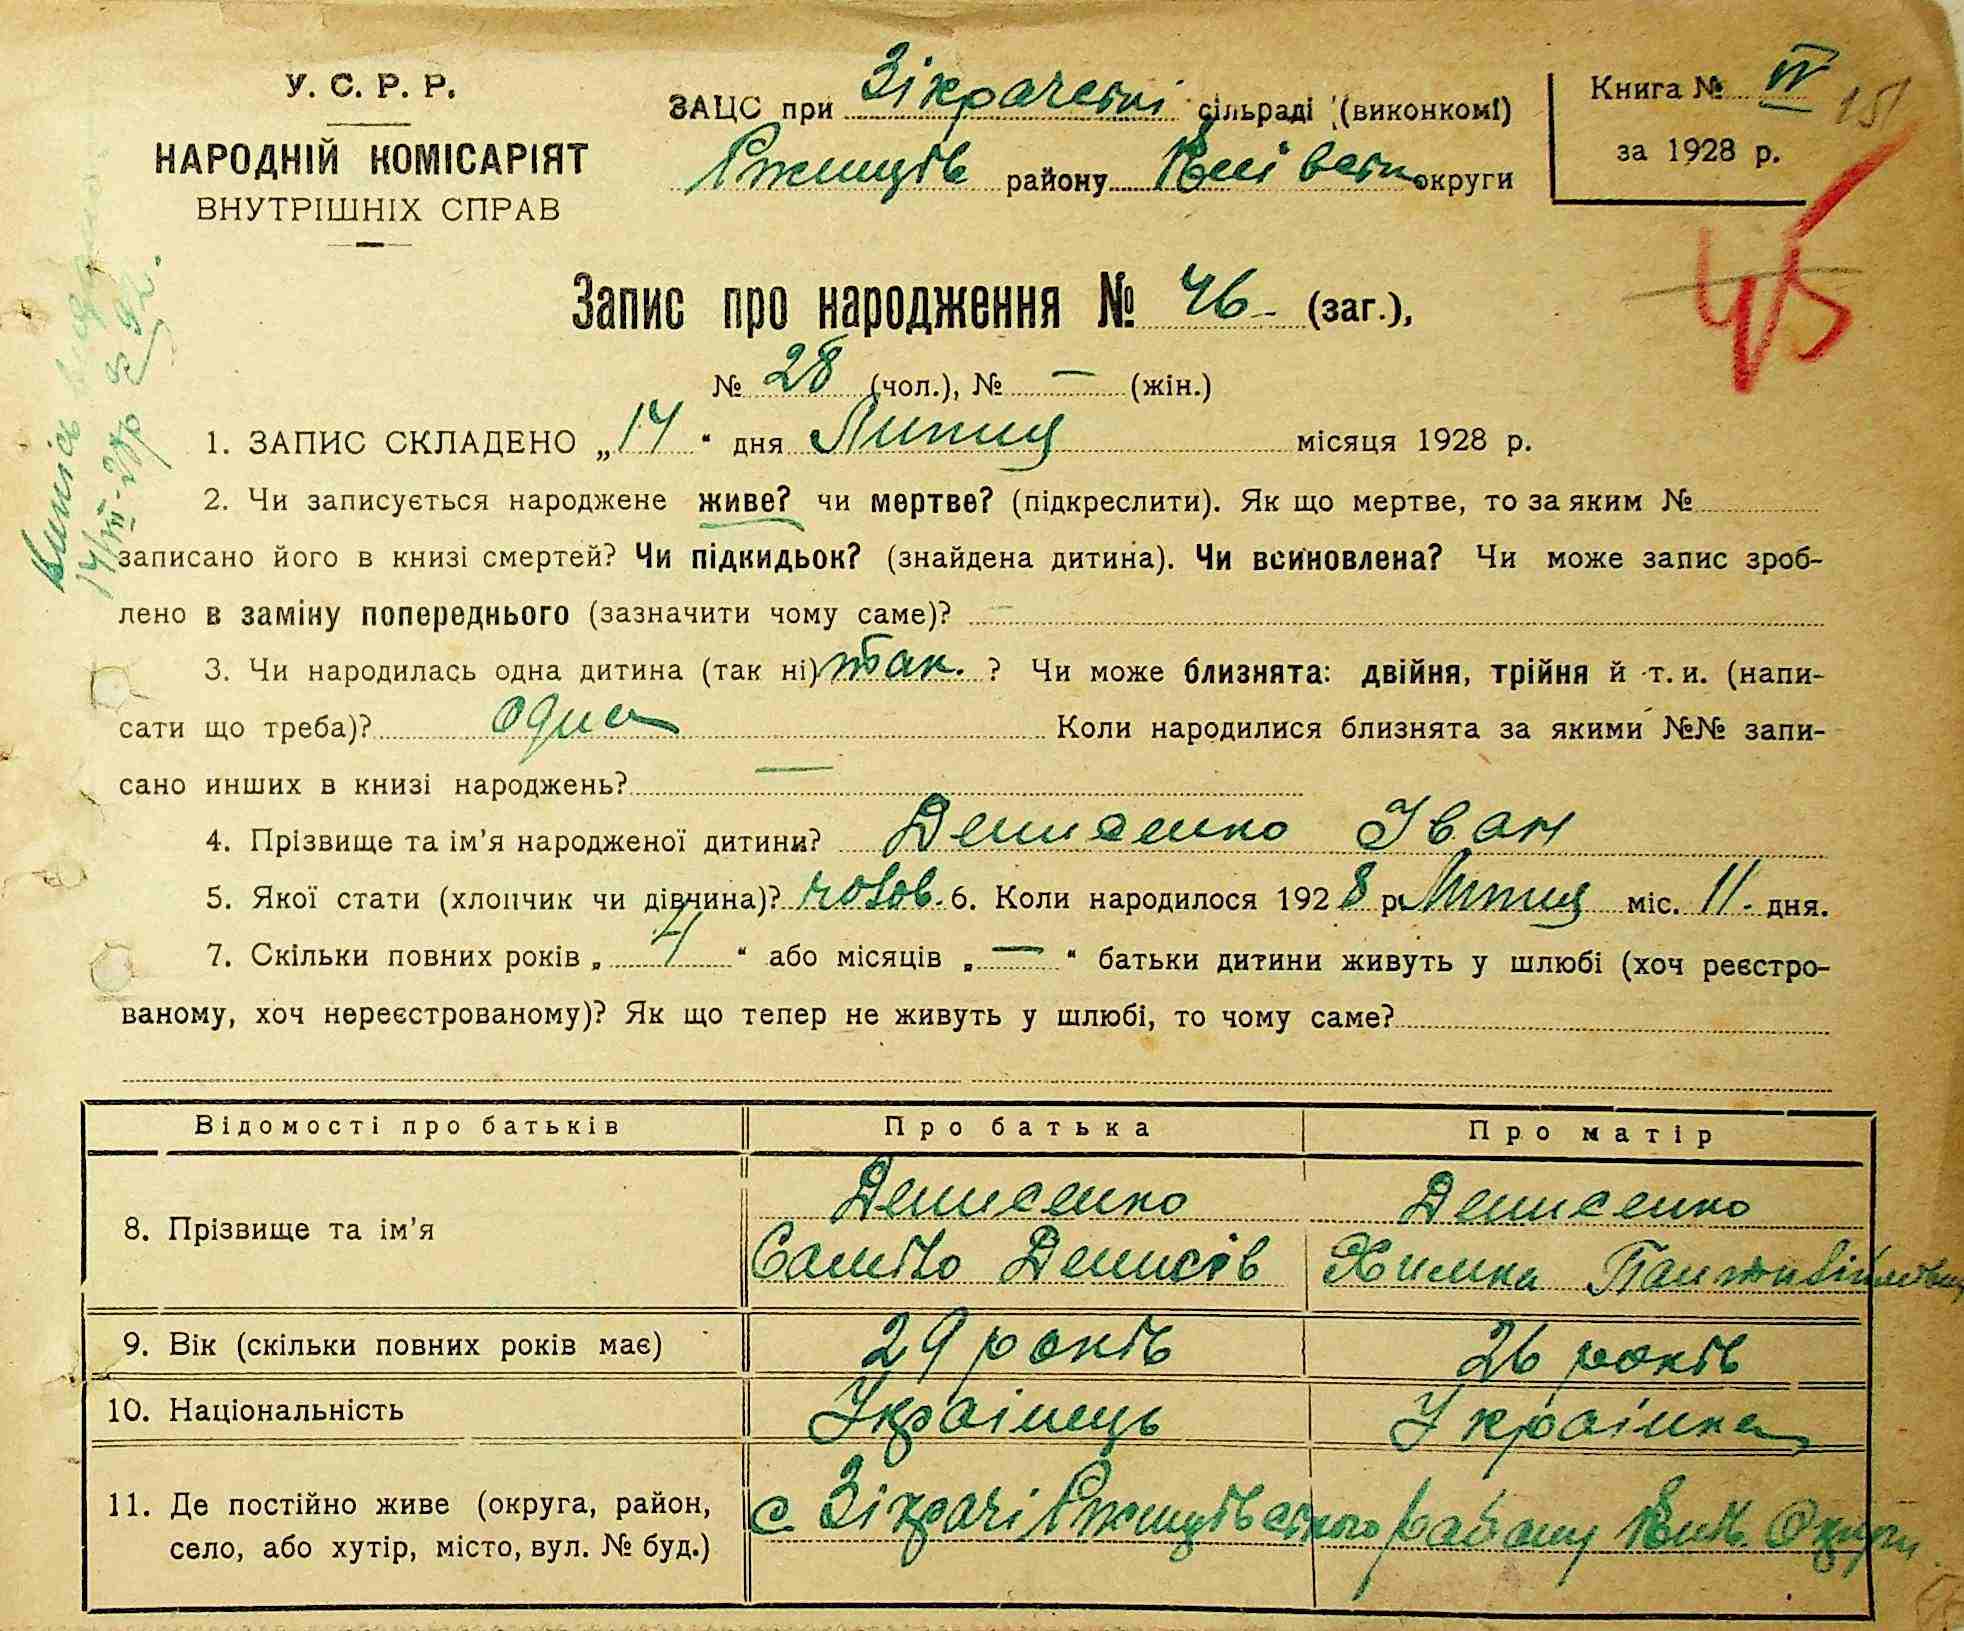 У. С. Р. Р.
НАРОДНІЙ КОМІСАРІЯТ
ВНУТРІШНІХ СПРАВ
ЗАЦС при Зікрачегні сільраді (виконкомі)
Ржищів району округи
Книга № IV 151
за 1928 р.
45
Запис про народження № 46 (заг.),
№ 28 (чол.), № — (жін.)
1. ЗАПИС СКЛАДЕНО „14“ дня Липця місяця 1928 р.
2. Чи записується народжене живе? чи мертве? (підкреслити). Як що мертве, то за яким №
записано його в книзі смертей? Чи підкидьок? (знайдена дитина). Чи всиновлена? Чи може запис зроб-
лено в заміну попереднього (зазначити чому саме)? —
3. Чи народилась одна дитина (так ні) так. ? Чи може близнята: двійня, трійня й т. и. (напи-
сати що треба)? одна Коли народилися близнята за якими №№ запи-
сано инших в книзі народжень? —
4. Прізвище та ім'я народженої дитини? Денисенко Іван
5. Якої стати (хлопчик чи дівчина)? чолов. 6. Коли народилося 1928 р. Липця міс. 11. дня.
7. Скільки повних років „4“ або місяців „—“ батьки дитини живуть у шлюбі (хоч реєстро-
ваному, хоч нереєстрованому)? Як що тепер не живуть у шлюбі, то чому саме?
Відомості про батьків Про батька Про матір
8. Прізвище та ім'я Денисенко Денисенко
Самійло Денисів Химка
9. Вік (скільки повних років має) 29 років 26 років
10. Національність Українець Українка
11. Де постійно живе (округа, район, с Зікрачі Ржищівського району Київ. Округи
село, або хутір, місто, вул. № буд.)
Випись видана
14/VII-28р